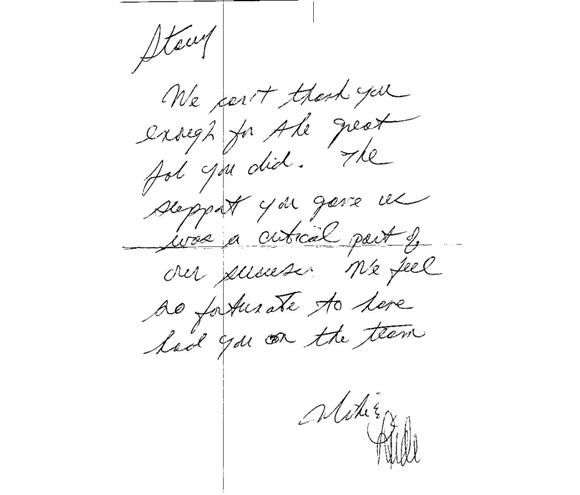 Stacy
We can't thank you
enough for the great
job you did. The
support you gave us
was a critical part of
our success. We feel
so fortunate to have
had you on the team
Mike &